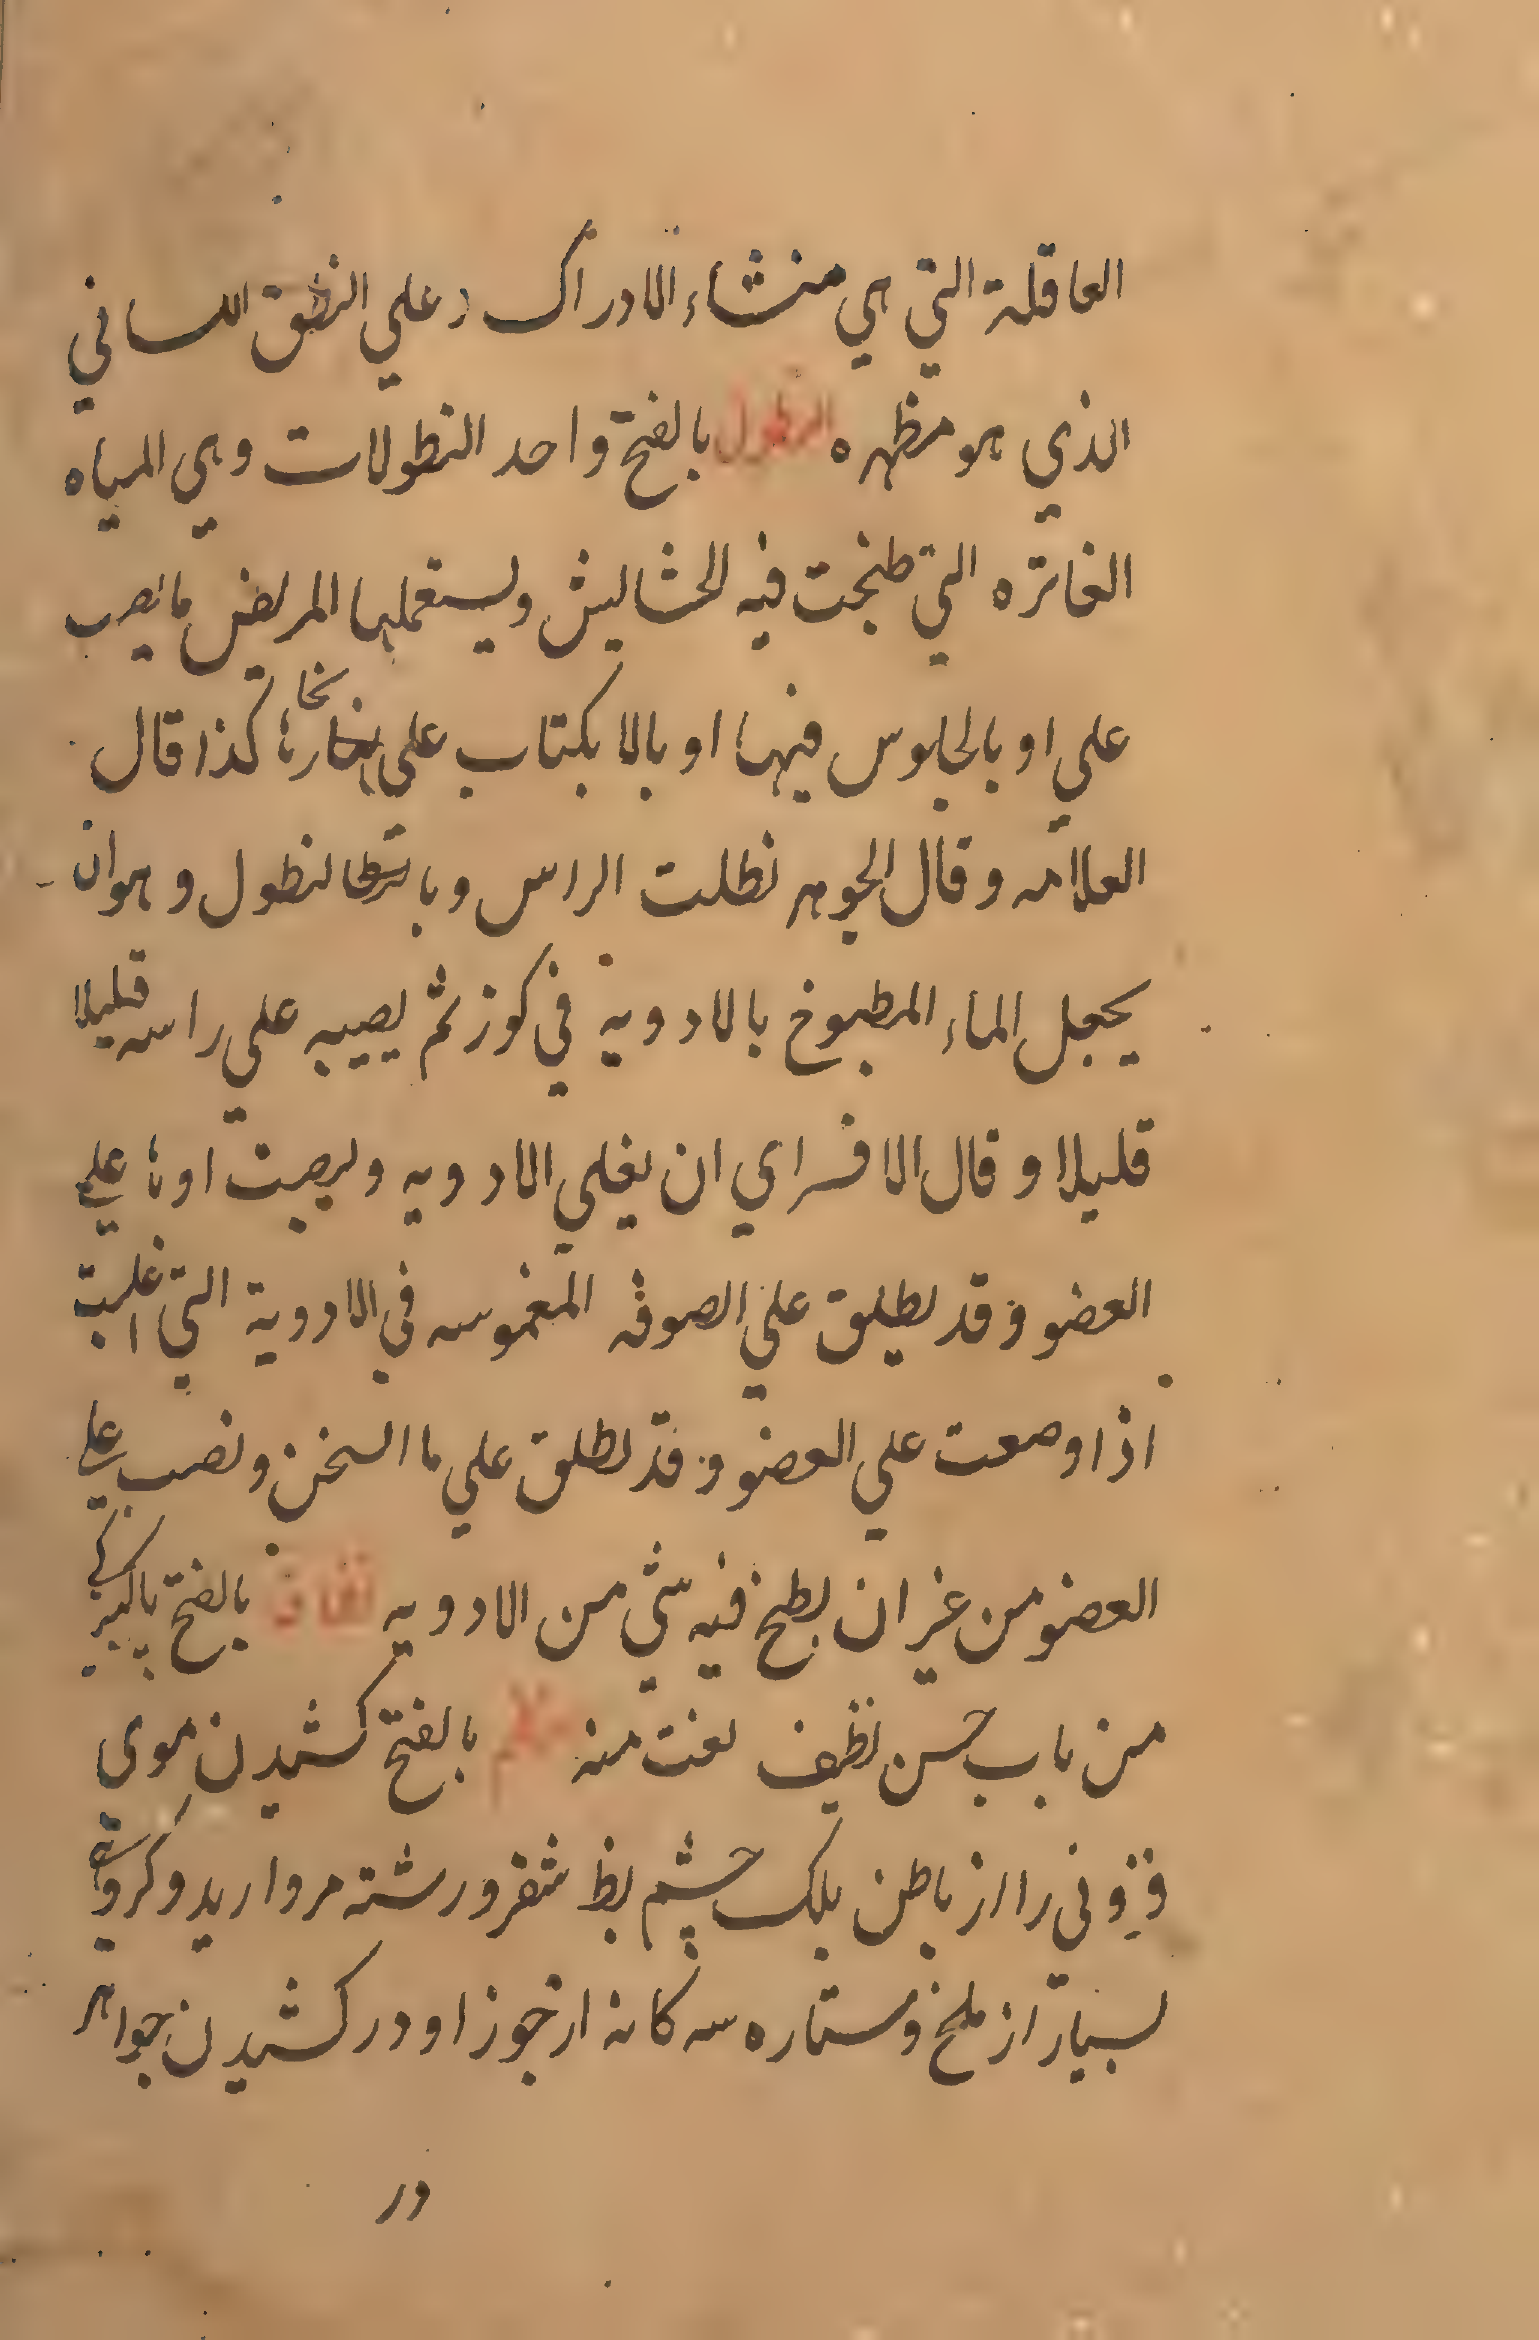 العاقلة التي هي منشاء الادراك و علي النطق اللساني
الذي هو مظهره النطول بالفتح واحد النطولات وهي المياه
الفاتره التي طبخت فيه الحشايش ويستعملها المريض ما يصب
علي او بالجلوس فيها او بالا بكتاب علي بخارها كذا قال
العلامه و قال الجوهر نطلت الراس و بالنطول و هو ان
يجعل الماء المطبوخ بالادوية في كوز ثم يصيبه علي راسه قليلا
قليلا و قال الاقسراي ان يغلي الادويه و يصب اونا علي
العضو و قد يطلق علي الصوفه المغموسه في الادوية التي اغليت
اذا وضعت علي العضو و قد يطلق علي ما السخن و نصب علي
العضو من غير ان يطبخ فيه شي من الادويه نظافة بالفتح پاكيزكي
من باب حسن نظيف نعت منه نظم بالفتح كشيدن موى
فزوني را از باطن پلك چشم بظ شفر و رشته مرواريد و كروهي
بسيار از ملخ و ستاره سه كانه از جوزا و در كشيدن جواهر
در